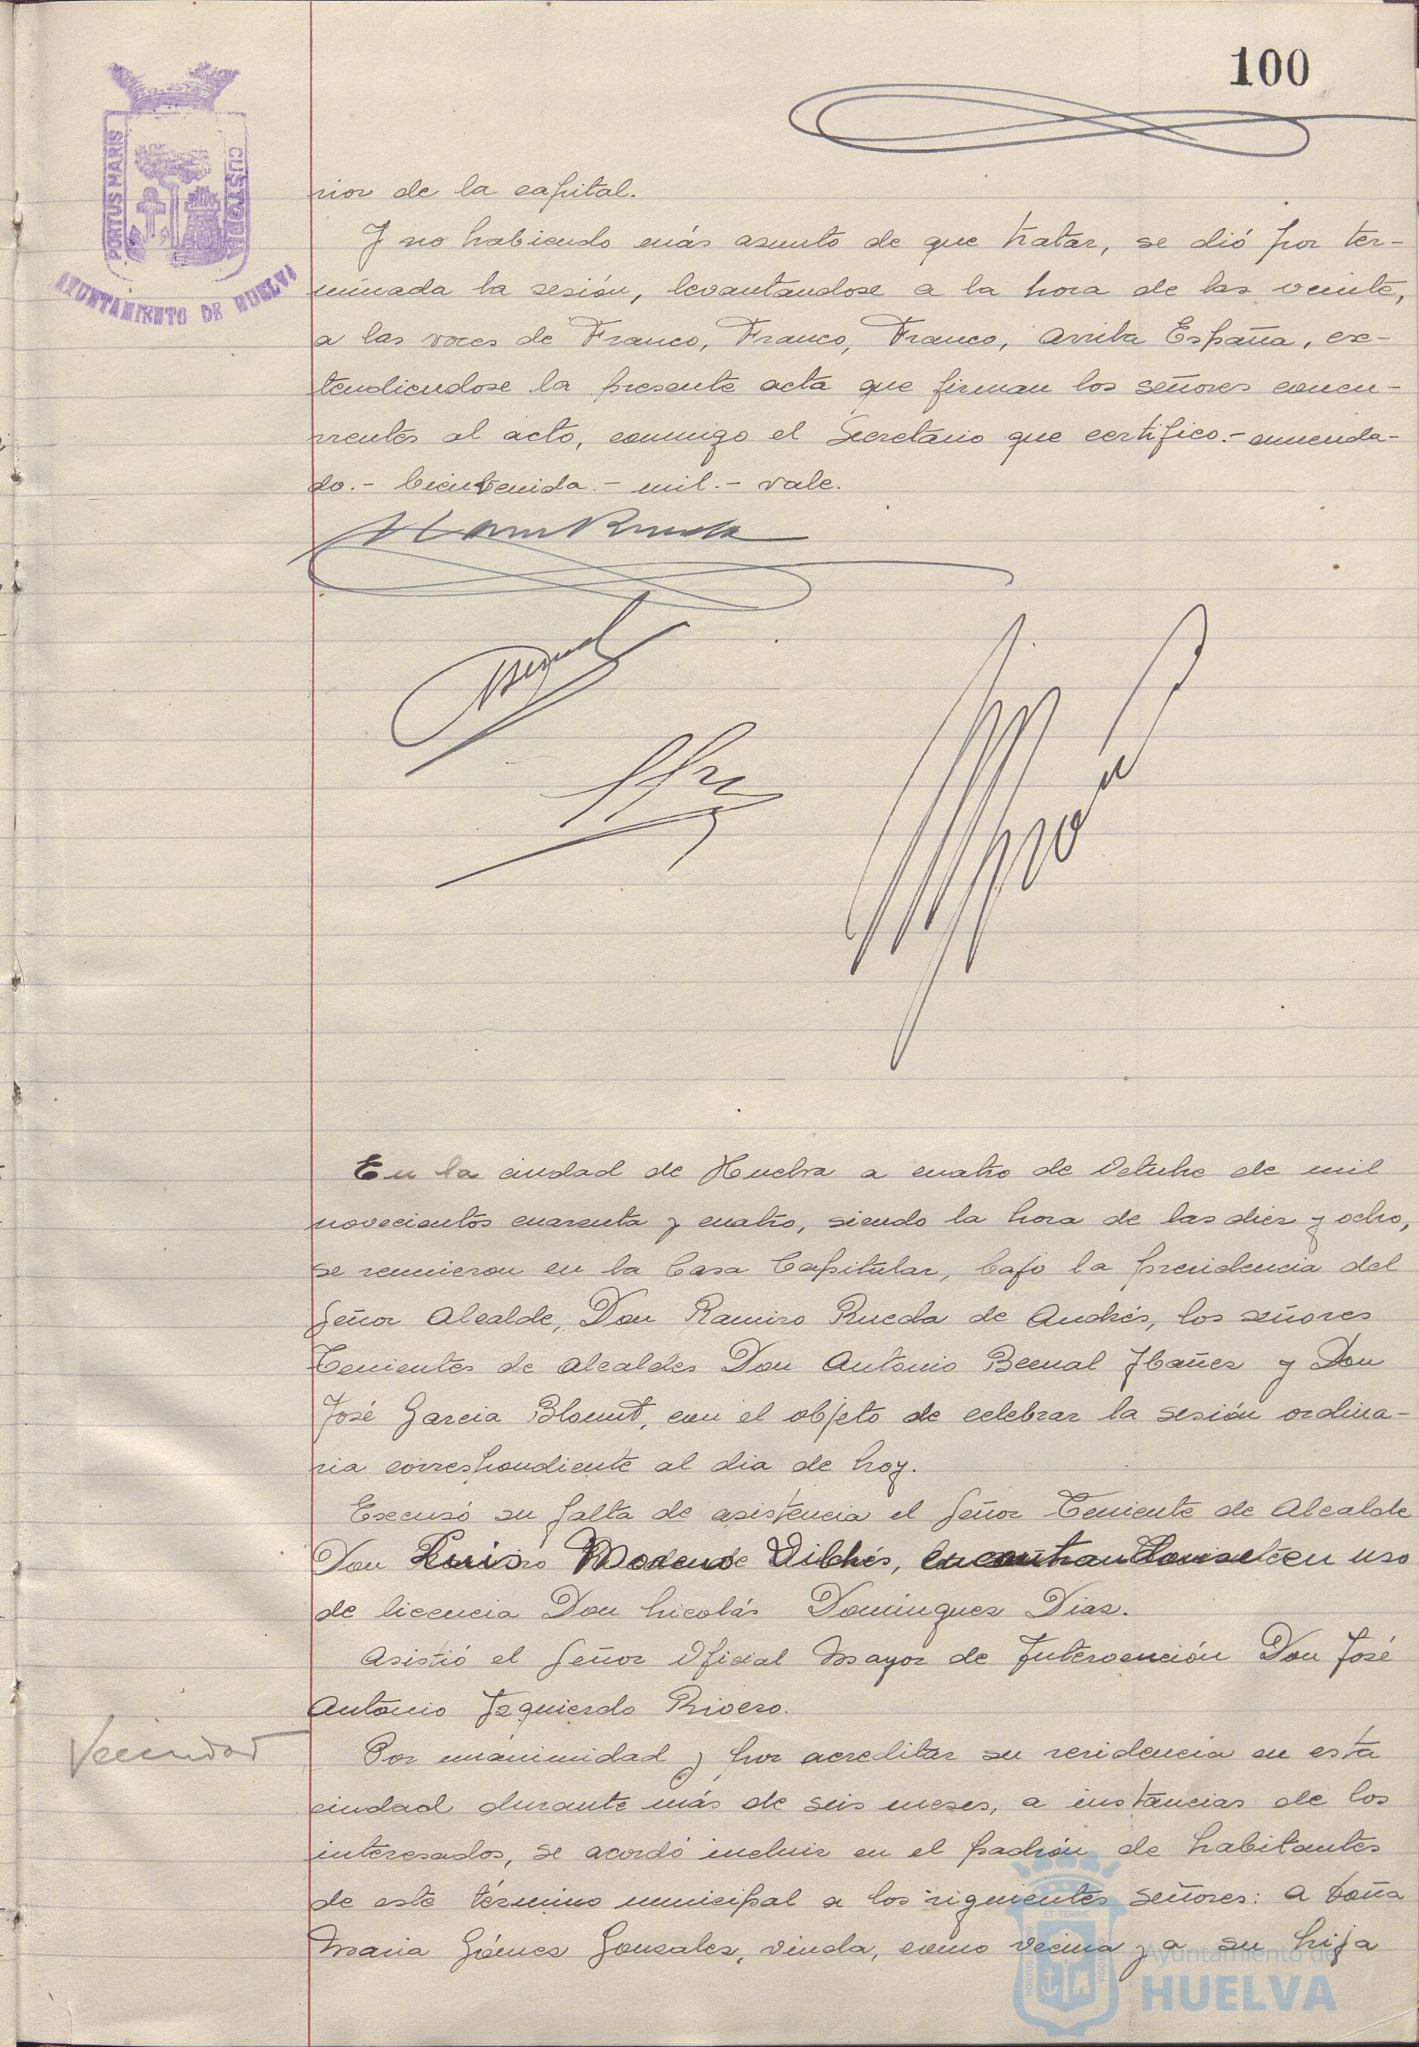 100
PORTUS MARIS
CUSTODIA
AYUNTAMIENTO DE HUELVA
rior de la capital.
Y no habiendo más asunto de que tratar, se dió por ter-
minada la sesión, levantandose a la hora de las veinte,
a las voces de Franco, Franco, Franco, Arriba España, ex-
tendiendose la presente acta que firman los señores concu-
rrentes al acto, conmigo el Secretario que certifico.- enmenda-
do.- bienvenida.- mil.- vale.
En la ciudad de Huelva a cuatro de Octubre de mil
novecientos cuarenta y cuatro, siendo la hora de las diez y ocho,
se reunieron en la Casa Capitular, bajo la presidencia del
Señor Alcalde, Don Ramiro Rueda de Andrés, los señores
Tenientes de Alcaldes Don Antonio Bernal Ibañez y Don
José Garcia Blount, con el objeto de celebrar la sesión ordina-
ria correspondiente al dia de hoy.
Excusó su falta de asistencia el Señor Teniente de Alcalde
Don Luis Moreno Vilches, encontrandose en uso
de licencia Don Nicolás Dominguez Diaz.
Asistió el Señor Oficial Mayor de Intervención Don José
Antonio Izquierdo Rivero.
Vecindad
Por unanimidad y por acreditar su residencia en esta
ciudad durante más de seis meses, a instancias de los
interesados, se acordó incluir en el padrón de habitantes
de este término municipal a los siguientes señores: a doña
Maria Gómez Gonzalez, viuda, como vecina y a su hija
Ayuntamiento de
HUELVA